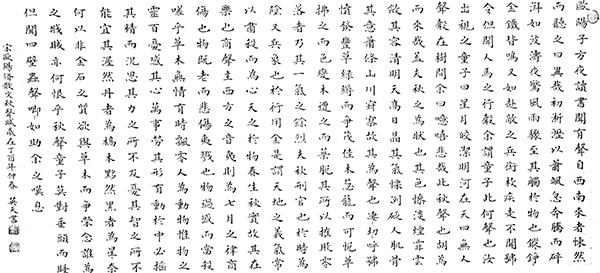 歐陽子方夜讀書聞有聲自西南來者悚然
而聽之曰異哉初淅瀝以蕭颯忽奔騰而砰
湃如波濤夜驚風雨驟至其觸於物也鏦錚
金鐵皆鳴又如赴敵之兵銜枚疾走不聞號
令但聞人馬之行聲余謂童子此何聲也汝
出視之童子曰星月皎潔明河在天四無人
聲聲在樹間余曰噫嘻悲哉此秋聲也胡為
而來哉蓋夫秋之為狀也其色慘淡煙霏雲
斂其容清明天高日晶其氣慄冽砭人肌骨
其意蕭條山川寂寥故其為聲也淒切呼號
憤發豐草綠縟而爭茂佳木葱蘢而可悅草
拂之而色變木遭之而葉脫其所以摧敗零
落者乃其一氣之餘烈夫秋刑官也於時為
陰又兵象也於行用金是謂天地之義氣常
以肅殺而為心天之於物春生秋實故其在
樂也商聲主西方之音夷則為七月之律商
傷也物既老而悲傷夷戮也物過盛而當殺
嗟乎草木無情有時飄零人為動物惟物之
靈百憂感其心萬事勞其形有動於中必搖
其精而況思其力之所不及憂其智之所不
能宜其渥然丹者為槁木黟然黑者為星奈
何以非金石之質欲與草木而爭榮念誰為
之戕賊亦何恨乎秋聲童子莫對垂頭而睡
但聞四壁蟲聲唧如助余之嘆息
宋歐陽脩散文秋聲賦歲在丁酉年仲春 英文書